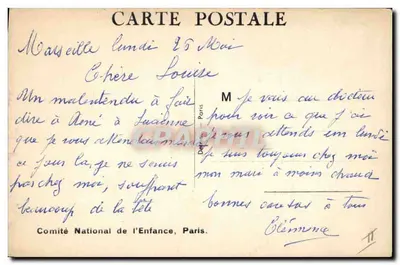 CARTE POSTALE
Marseille lundi 25 Mai
Chère Louise
Un malentendu à fait
dire à René à Suzanne
que je vous attendais
ce jour la, je ne serais
pas chez moi, souffrant
beaucoup de la tête
M Je vais au docteur
pour voir ce que j'ai
Vous attends un lundi
je suis toujours chez moi
mon mari à moins chaud
bonnes caresses à tous
Clémence
Paris
Comité National de l'Enfance, Paris.